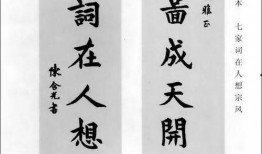 本 七家词在人想宗风
雅正
畵成天開
詞在人想
陳含光書